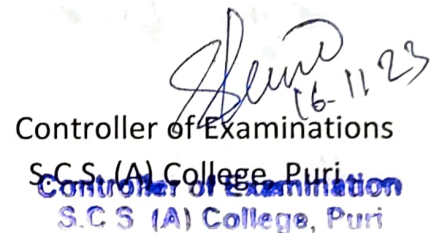 16-11-23
Controller of Examinations
S.C.S. (A) College, Puri
Controller of Examination
S.C S (A) College, Puri